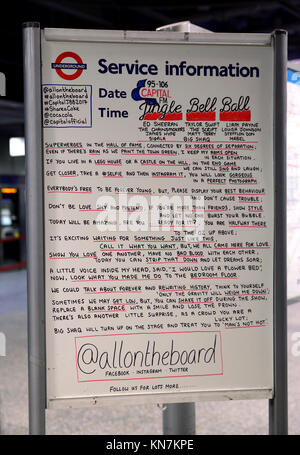 UNDERGROUND
Service information
@allontheboard
#allontheboard
#CapitalJBB2017
#ShareaCoke
@cocacola
@capitalofficial
Date
95-106
CAPITAL FM
Time
Jingle Bell Ball
ED SHEERAN TAYLOR SWIFT LIAM PAYNE
THE CHAINSMOKERS THE SCRIPT LOUISA JOHNSON
JAMES HYPE MATT TERRY
BIG SHAQ
SUPERHEROES IN THE HALL OF FAME, CONNECTED BY SIX DEGREES OF SEPARATION,
EVEN IF THERE'S RAIN WE CAN'T PAINT THE TOWN GREEN, I KEEP MY EYES OPEN
IN EACH SITUATION.
IF YOU LIVE IN A LEGO HOUSE OR A CASTLE ON THE HILL, IN THE END
WE CAN STILL SING REAL LOUD;
GET CLOSER, TAKE A #SELFIE AND THEN INSTAGRAM IT, YOU WILL LOOK REAL GOOD
IN A PERFECT PHOTOGRAPH.
EVERYBODY'S FREE TO BE FOREVER YOUNG, BUT, PLEASE DISPLAY YOUR BEST BEHAVIOUR
AND DON'T CAUSE TROUBLE,
DON'T BE
AND LET NO ONE BURST YOUR BUBBLE
TODAY WILL BE AMAZING, ARE YOU READY FOR IT? YOU ARE HALFWAY THERE
TO THE O2 UP ABOVE;
IT'S EXCITING WAITING FOR SOMETHING JUST LIKE THIS,
CALL IT WHAT YOU WANT, BUT, WE ALL CAME HERE FOR LOVE
SHOW YOU LOVE ONE ANOTHER, HAVE NO BAD BLOOD WITH EACH OTHER,
TODAY YOU CAN STRIP THAT DOWN AND LET DREAMS SOAR;
A LITTLE VOICE INSIDE MY HEAD, SAID, "I WOULD LOVE A FLOWER BED",
NOW, LOOK WHAT YOU MADE ME DO TO THE BEDROOM FLOOR.
WE COULD TALK ABOUT FOREVER AND REWRITING HISTORY, THINK TO YOURSELF
"ONLY THE GRAVITY WILL WEIGH ME DOWN";
SOMETIMES WE MAY GET LOW, BUT, YOU CAN SHAKE IT OFF DURING THE SHOW,
REPLACE A BLANK SPACE WITH A SMILE AND LOSE THE FROWN.
THERE'S ALSO ANOTHER LITTLE SURPRISE, AS A CROWD YOU ARE A
LUCKY LOT;
BIG SHAQ WILL TURN UP ON THE STAGE AND TREAT YOU TO "MAN'S NOT HOT".
@allontheboard
FACEBOOK · INSTAGRAM · TWITTER
FOLLOW US FOR LOTS MORE
alamy